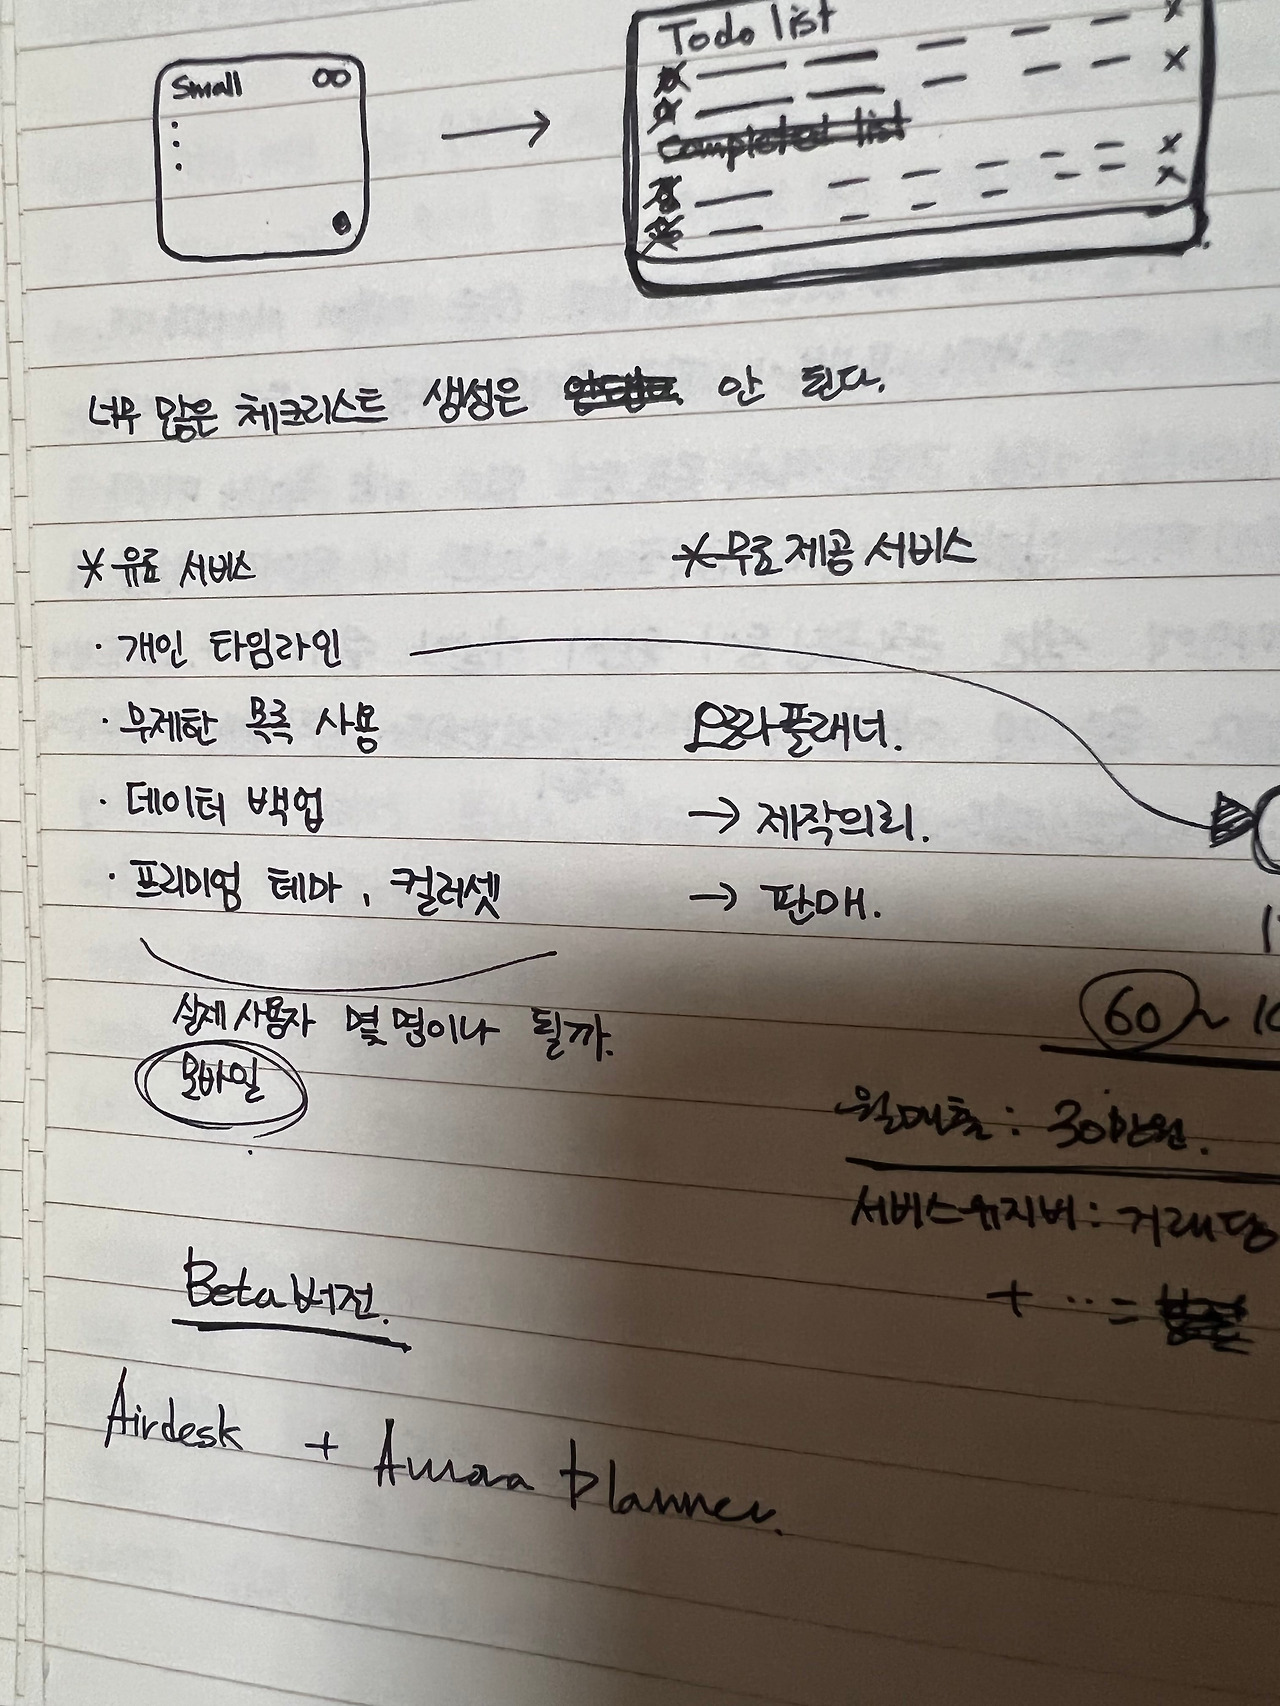 Small
Todo list
Completed list
너무 많은 체크리스트 생성은 안 된다.
* 유료 서비스
* 무료제공 서비스
· 개인 타임라인
· 무제한 목록 사용
· 데이터 백업
· 프리미엄 테마, 컬러셋
오로라플래너.
→ 제작의뢰.
→ 판매.
실제 사용자 몇 명이나 될까.
모바일
60 ~ 10
월매출: 30만원.
서비스유지비: 거래당
+ ·· =
Beta 버전.
Airdesk + Aurora planner.